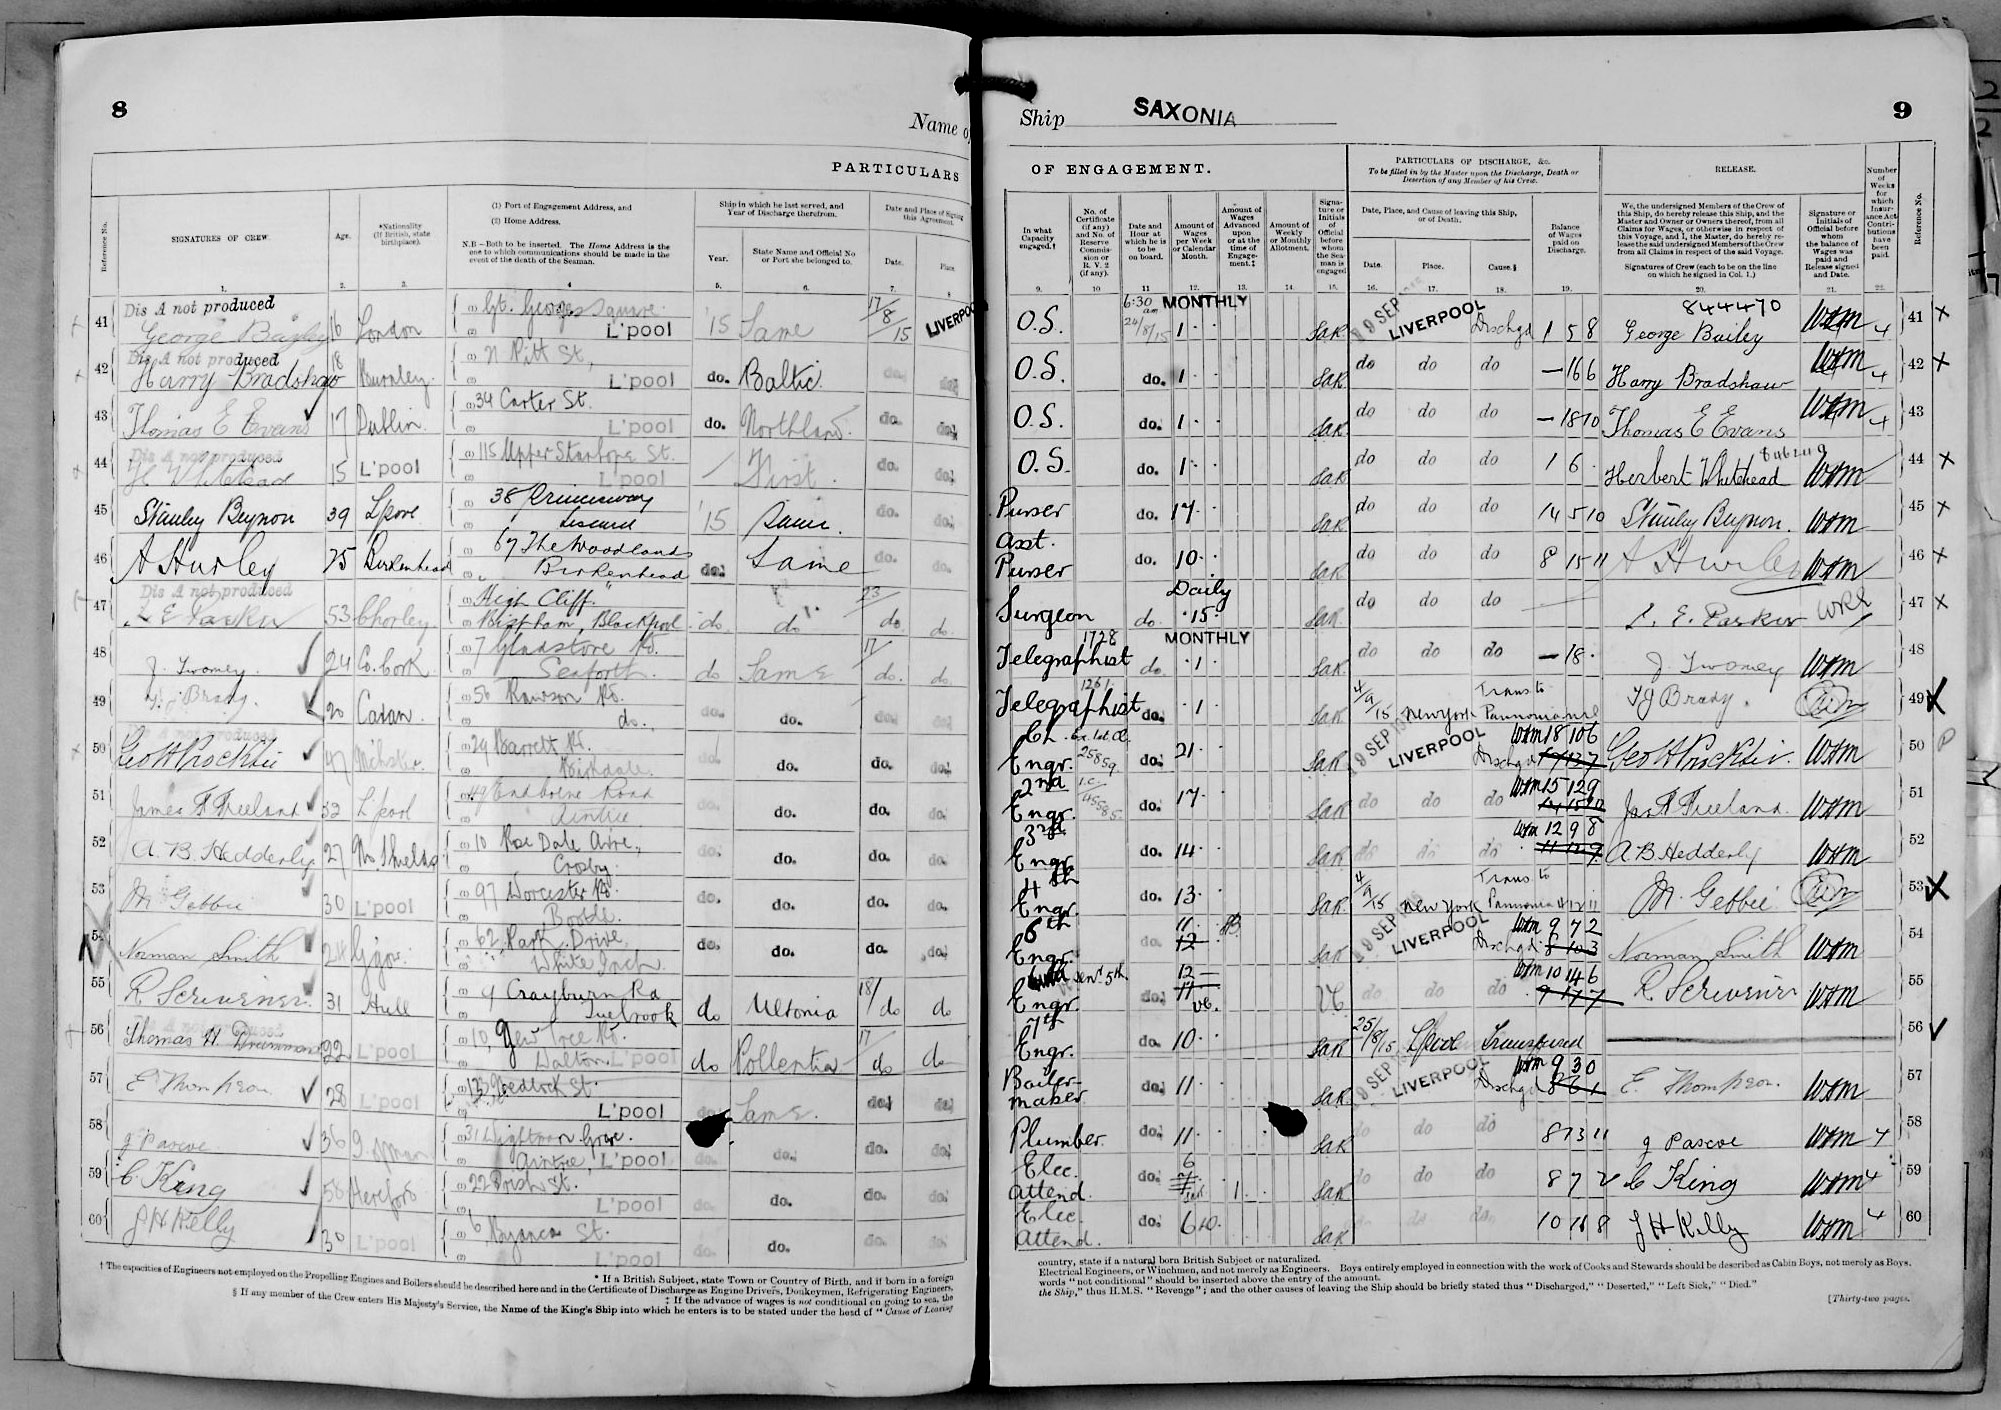 8
Name of
PARTICULARS
Reference No.
SIGNATURES OF CREW.
Age.
*Nationality
(If British, state
birthplace).
(1) Port of Engagement Address, and
(2) Home Address.
N.B—Both to be inserted. The Home Address is the
one to which communications should be made in the
event of the death of the Seaman.
Ship in which he last served, and
Year of Discharge therefrom.
Year.
State Name and Official No
or Port she belonged to.
Date and Place of Signing
this Agreement.
Date.
Place
1. 2. 3. 4 5. 6. 7. 8
Dis A not produced
41 George Bailey 16 London Gt. Georges Square L'pool '15 Same 17/8/15 LIVERPOOL
Dis A not produced
42 Harry Bradshaw 18 Burnley 71 Pitt St, L'pool do. Baltic do. do.
43 Thomas E Evans 17 Dublin 34 Carter St. L'pool do. Northland do. do.
Dis A not produced
44 H Whitehead 15 L'pool 115 Upper Stanhope St. L'pool First do. do.
45 Stanley Beynon 39 Lpool 38 Liscard '15 Same do. do.
46 A Hurley 25 Birkenhead 67 The Woodlands Birkenhead do. Same do. do.
Dis A not produced
47 L E Parker 53 Chorley High Cliff Bispham, Blackpool do do 23/ do. do.
48 J. Twomey 24 Co. Cork 7 Gladstone Rd. Seaforth do Same 17/ do. do.
49 T. J Brady. 20 Cavan. 56 Rawson Rd. do. do. do. do. do.
50 Geo H Procktir 47 29 Barrett Rd. Birkdale. do. do. do. do.
51 James F Freeland 52 L'pool 49 Endborne Road Aintree do. do. do. do.
52 A. B. Hedderly 27 No. Shields 10 Rose Dale Aire., Crosby do. do. do. do.
53 M Gebbie 30 L'pool 97 Worcester Rd. Bootle. do. do. do. do.
54 Norman Smith 24 Ggow. 62, Park Drive, White Inch do. do. do. do.
55 R. Scrivener 31 Hull 9 Crayburn Rd Tuebrook do Ultonia 18/ do do
56 Thomas H. Drummond 22 L'pool 10, Yew Tree Rd. Walton. L'pool do Pollentia 17/ do do
57 E Thompson 28 L'pool St. L'pool do Same. do. do.
58 J Pascoe 36 31 Wightman Grove. Aintree, L'pool do. do. do. do.
59 C. King 58 Hereford 22 St. L'pool do. do. do. do.
60 J H Kelly 30 L'pool 6 Byanca St. L'pool do. do. do. do.
† The capacities of Engineers not employed on the Propelling Engines and Boilers should be described here and in the Certificate of Discharge as Engine Drivers, Donkeymen, Refrigerating Engineers,
* If a British Subject, state Town or Country of Birth, and if born in a foreign
‡ If the advance of wages is not conditional on going to sea, the
§ If any member of the Crew enters His Majesty's Service, the Name of the King's Ship into which he enters is to be stated under the head of "Cause of Leaving
Ship SAXONIA
9
OF ENGAGEMENT.
PARTICULARS OF DISCHARGE, &c.
To be filled in by the Master upon the Discharge, Death or
Desertion of any Member of his Crew.
RELEASE.
In what
Capacity
engaged.†
No. of
Certificate
(if any)
and No. of
Reserve
Commis-
sion or
R. V. 2
(if any).
Date and
Hour at
which he is
to be
on board.
Amount of
Wages
per Week
or Calendar
Month.
Amount of
Wages
Advanced
upon
or at the
time of
Engage-
ment.‡
Amount of
Weekly
or Monthly
Allotment.
Signa-
ture or
Initials
of
Official
before
whom
the Sea-
man is
engaged
Date, Place, and Cause of leaving this Ship,
or of Death.
Date.
Place.
Cause.§
Balance
of Wages
paid on
Discharge.
We, the undersigned Members of the Crew of
this Ship, do hereby release this Ship, and the
Master and Owner or Owners thereof, from all
Claims for Wages, or otherwise in respect of
this Voyage, and I, the Master, do hereby re-
lease the said undersigned Members of the Crew
from all Claims in respect of the said Voyage.
Signatures of Crew (each to be on the line
on which he signed in Col. 1.)
Signature or
Initials of
Official before
whom
the balance of
Wages was
paid and
Release signed
and Date.
Number
of
Weeks
for
which
Insur-
ance Act
Contri-
butions
have
been
paid.
Reference No.
9. 10 11 12. 13. 14. 15. 16. 17. 18. 19. 20. 21. 22.
O.S. 6:30 am 24/8/15 MONTHLY 1 SAR 19 SEP 1915 LIVERPOOL Dischgd 1 5 8 844470 George Bailey WHM 4 41
O.S. do. 1 SAR do do do — 16 6 Harry Bradshaw WHM 4 42
O.S. do. 1 SAR do do do — 18 10 Thomas E Evans WHM 4 43
O.S. do. 1 SAR do do do 1 6 Herbert Whitehead WHM 44
Purser do. 17 SAR do do do 14 5 10 Stanley Beynon. WHM 45
Asst. Purser do. 10 SAR do do do 8 15 11 A Hurley WHM 46
Surgeon do. Daily 15 SAR do do do L. E. Parker 47
Telegraphist 1728 do MONTHLY 1 SAR do do do — 18 J Twomey WHM 48
Telegraphist 1261 do. 1 SAR 4/9/15 New York Trans to Pannonia nil TJ Brady. 49
Ch. Engr. Ex. 1st Cl. 25859 do. 21 SAR 19 SEP LIVERPOOL Dischgd WHM 18 10 6 Geo H Procktir. WHM 50
2nd Engr. 1.C. 45585 do. 17 SAR do do do WHM 15 12 9 Jas F Freeland. WHM 51
3rd Engr. do. 14 SAR do do do WHM 12 9 8 A B Hedderly WHM 52
4th Engr. do. 13 SAR 4/9/15 New York Trans to Pannonia 4 12 11 M. Gebbie 53
6th Engr. do 11 12 SAR 19 SEP LIVERPOOL Dischgd WHM 9 7 2 8 10 3 Norman Smith WHM 54
Engr. Senr 5th do. 12 11 VC do do do WHM 10 14 6 9 17 7 R. Scrivener WHM 55
7th Engr. do. 10 SAR 25/8/15 Lpool Transferred 56
Boiler-maker do. 11 SAR 19 SEP LIVERPOOL Dischgd WHM 9 3 0 8 6 1 E. Thompson. WHM 57
Plumber. do. 11 SAR do do do 8 13 11 J Pascoe WHM 4 58
Elec. attend. do. 6 7 1 SAR do do do 8 7 2 C King WHM 4 59
Elec. attend. do. 6 10 SAR do do do 10 11 8 J H Kelly WHM 4 60
country, state if a natural born British Subject or naturalized.
Electrical Engineers, or Winchmen, and not merely as Engineers. Boys entirely employed in connection with the work of Cooks and Stewards should be described as Cabin Boys, not merely as Boys.
words "not conditional" should be inserted above the entry of the amount.
the Ship," thus H.M.S. "Revenge"; and the other causes of leaving the Ship should be briefly stated thus "Discharged," "Deserted," "Left Sick," "Died."
[Thirty-two pages.